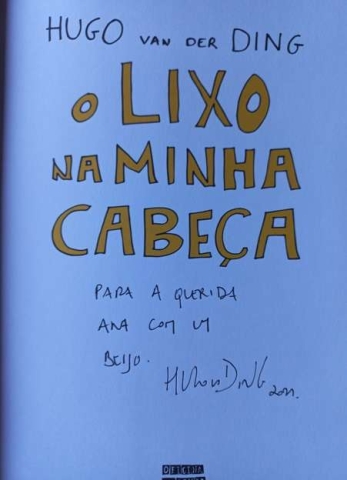 HUGO VAN DER DING
O LIXO
NA MINHA
CABEÇA
PARA A QUERIDA
ANA COM UM
BEIJO.
OFICINA